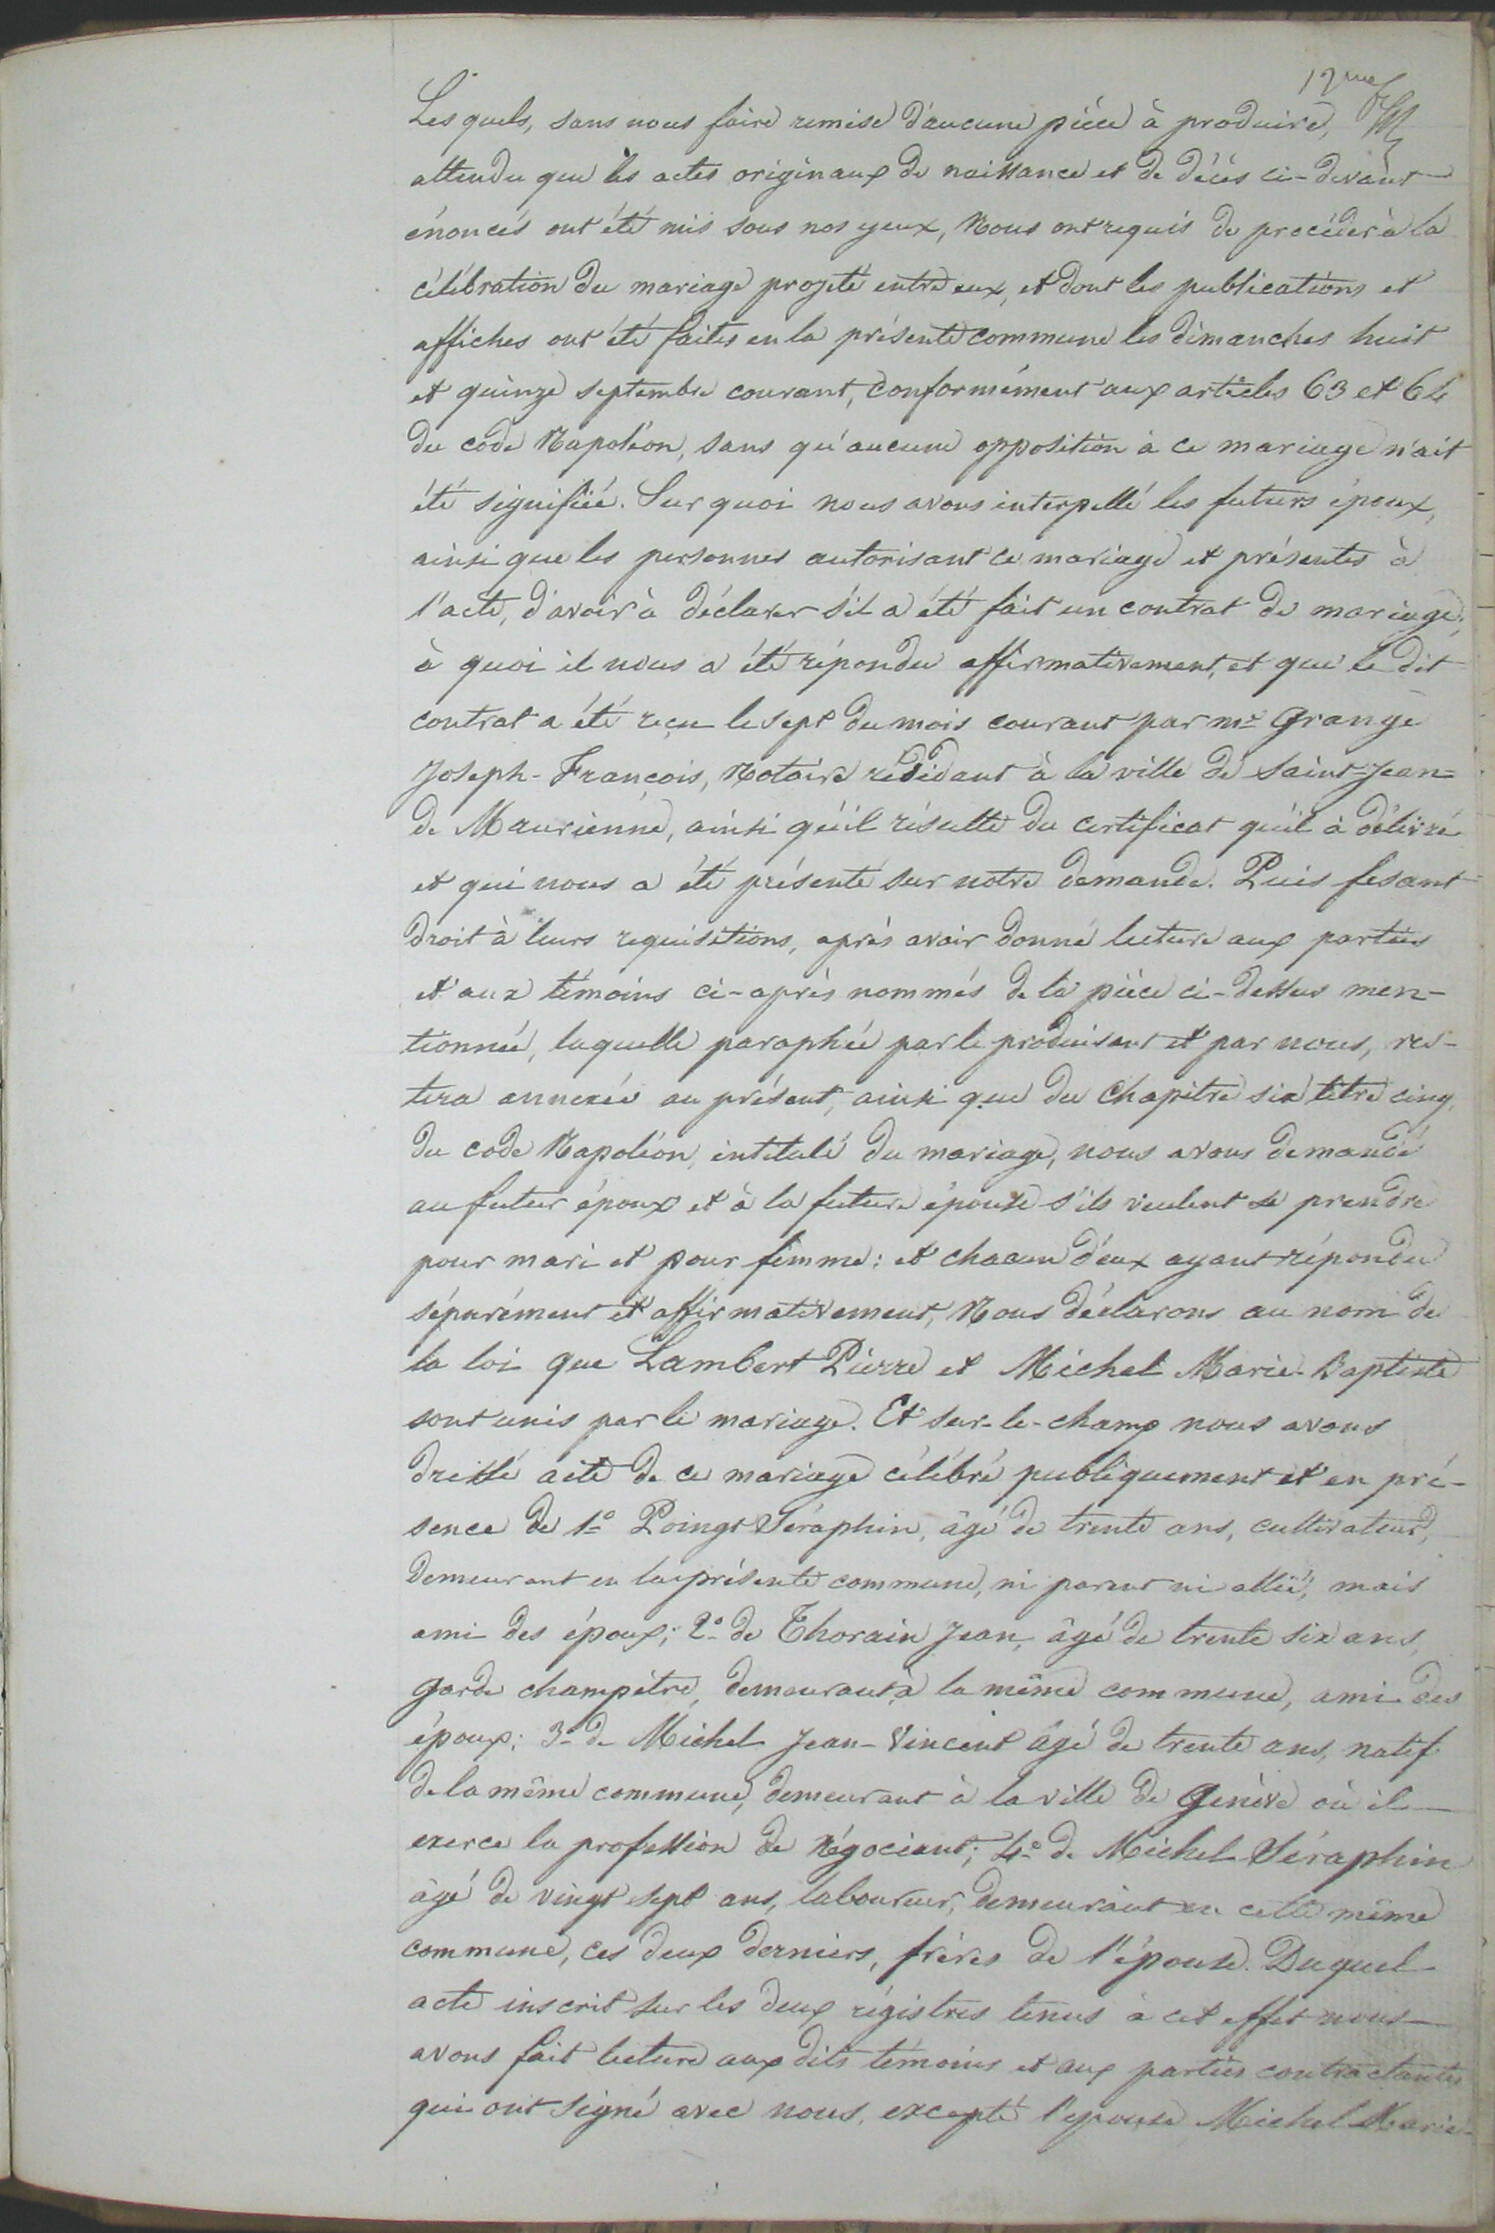 12me
Les quels, sans nous faire remise d'aucune pièce à produire,
attendu que les actes originaux de naissance et de décès ci-devant
énoncés ont été mis sous nos yeux, Nous ont requis de procéder à la
célébration du mariage projeté entre eux, et dont les publications et
affiches ont été faites en la présente commune les dimanches huit
et quinze septembre courant, conformément aux articles 63 et 64
du code Napoléon, sans qu'aucune opposition à ce mariage n'ait
été signifiée. Sur quoi nous avons interpellé les futurs époux,
ainsi que les personnes autorisant ce mariage et présentes à
l'acte, d'avoir à déclarer s'il a été fait un contrat de mariage;
à quoi il nous a été répondu affirmativement, et que le dit
contrat a été reçu le sept du mois courant par me Grange
Joseph-François, Notaire résidant à la ville de Saint-Jean-
de Maurienne, ainsi qu'il résulte du certificat qu'il à délivré
et qui nous a été présenté sur notre demande. Puis fesant
droit à leurs requisitions, après avoir donné lecture aux parties
et aux témoins ci-après nommés de la pièce ci-dessus men-
tionnée, laquelle paraphée par le produisant et par nous, res-
tera annexée au présent, ainsi que du chapitre six titre cinq
du code Napoléon, intitulé du mariage, nous avons demandé
au futur époux et à la future épouse s'ils veulent se prendre
pour mari et pour femme: et chacun d'eux ayant répondu
séparément et affirmativement, Nous déclarons au nom de
la loi que Lambert Pierre et Michel Marie-Baptiste
sont unis par le mariage. Et sur-le-champ nous avons
dressé acte de ce mariage célébré publiquement et en pré-
sence de 1o Poingt Séraphin, âgé de trente ans, cultivateur,
demeurant en la présente commune, ni parent ni allié, mais
ami des époux; 2o de Thorain Jean, âgé de trente six ans,
garde champêtre, demeurant à la même commune, ami des
époux; 3o de Michel Jean-Vincent âgé de trente ans, natif
de la même commune, demeurant à la ville de Genève où il
exerce la profession de Négociant; 4o de Michel Séraphin
âgé de vingt sept ans, laboureur, demeurant en cette même
commune, ces deux derniers, frères de l'épouse. Duquel
acte inscrit sur les deux régistres tenus à cet effet nous
avons fait lecture aux dits témoins et aux parties contractantes
qui ont signé avec nous, excepté l'epouse Michel Marie-